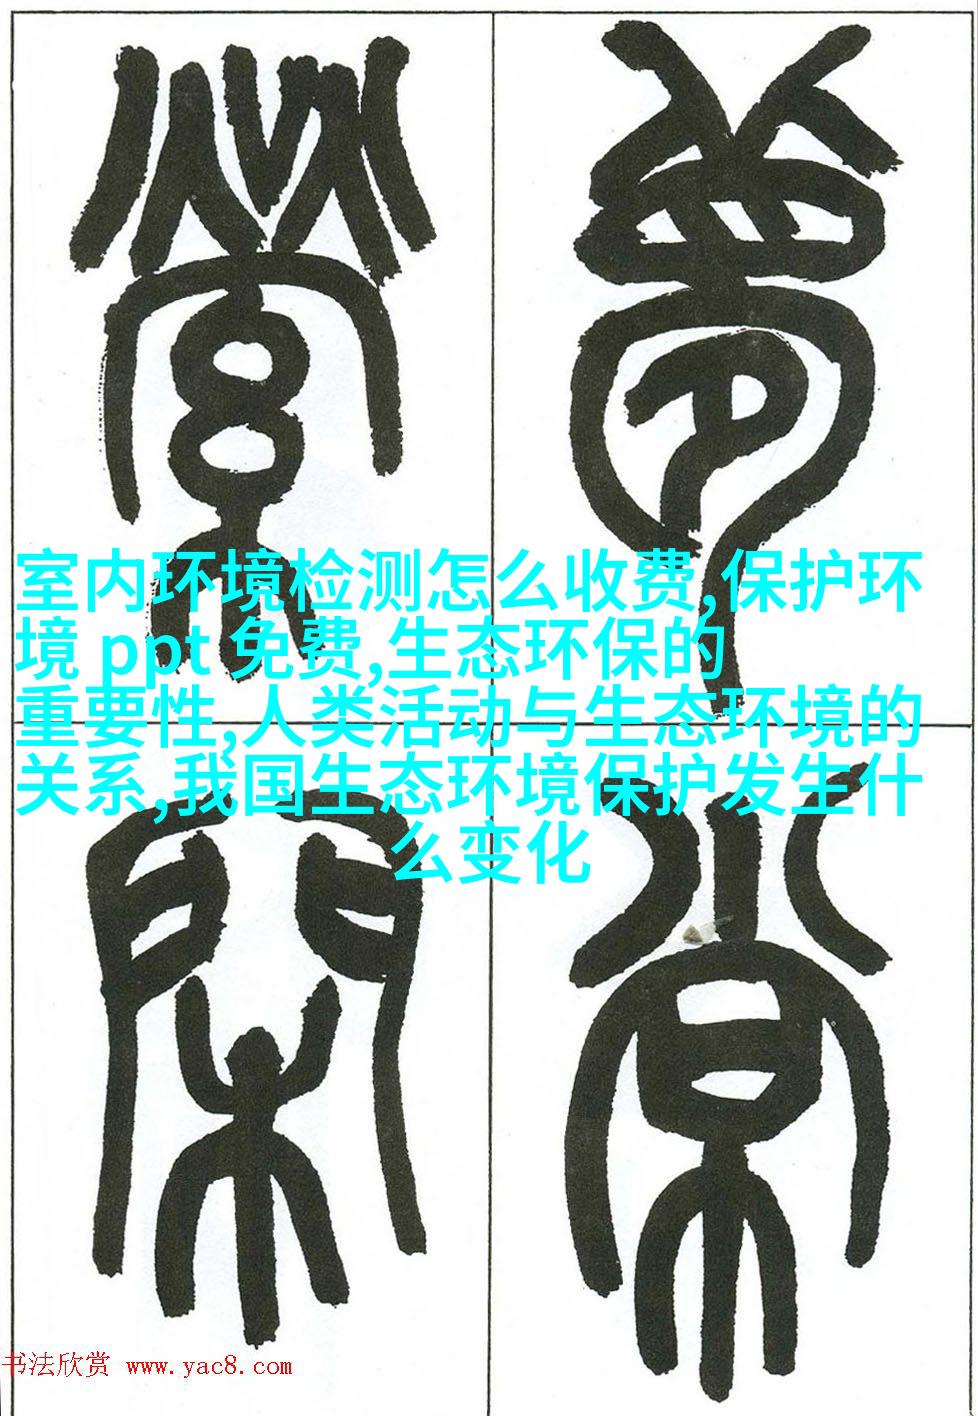 夢常
縈閑
室内环境检测怎么收费,保护环
境 ppt 免费,生态环保的
重要性,人类活动与生态环境的
关系,我国生态环境保护发生什
么变化
书法欣赏 www.yac8.com